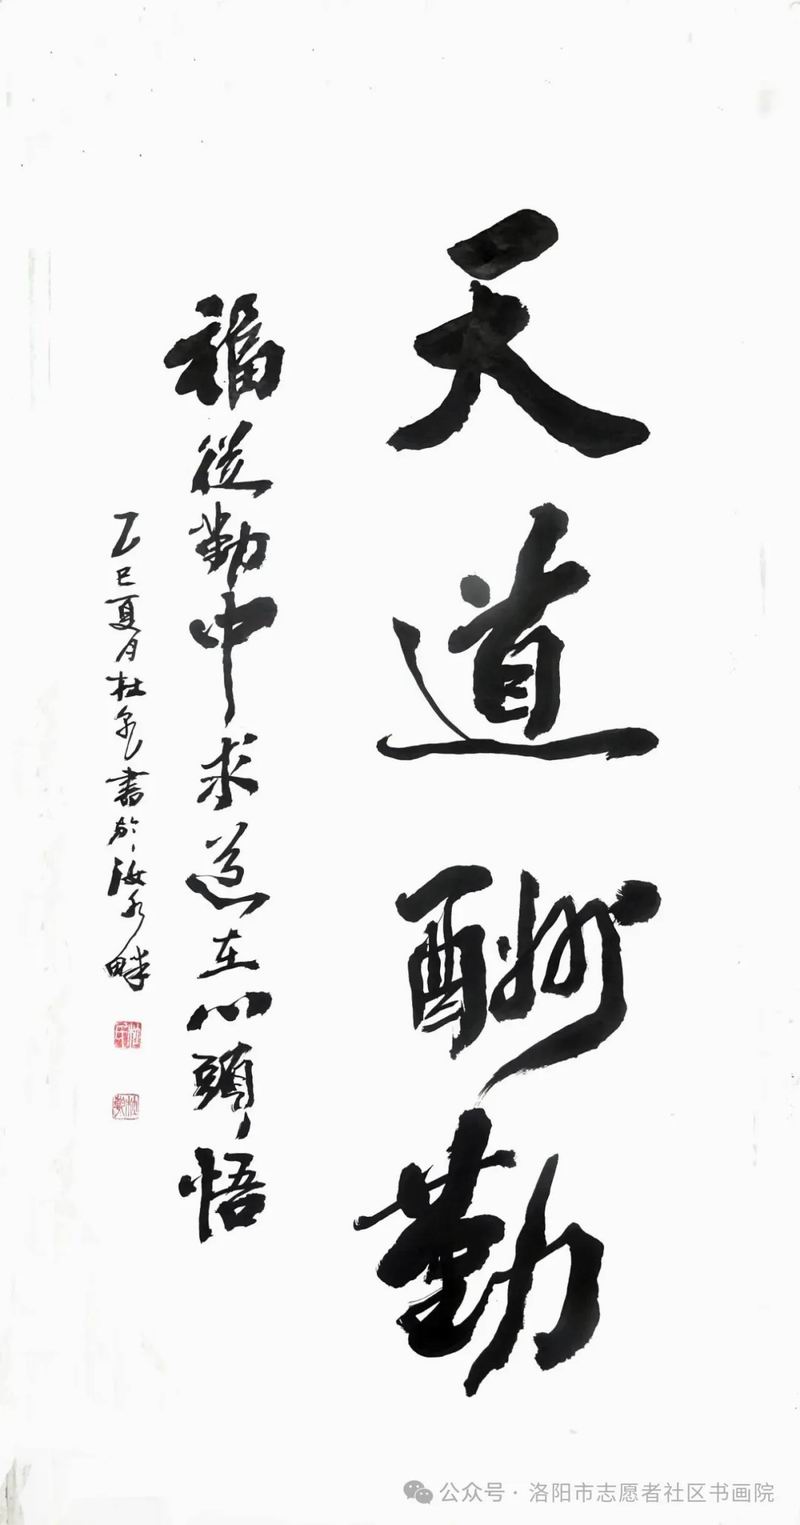 天道酬勤
福從勤中求道在心頭悟
乙巳夏月杜 書於汝水畔
公众号·洛阳市志愿者社区书画院